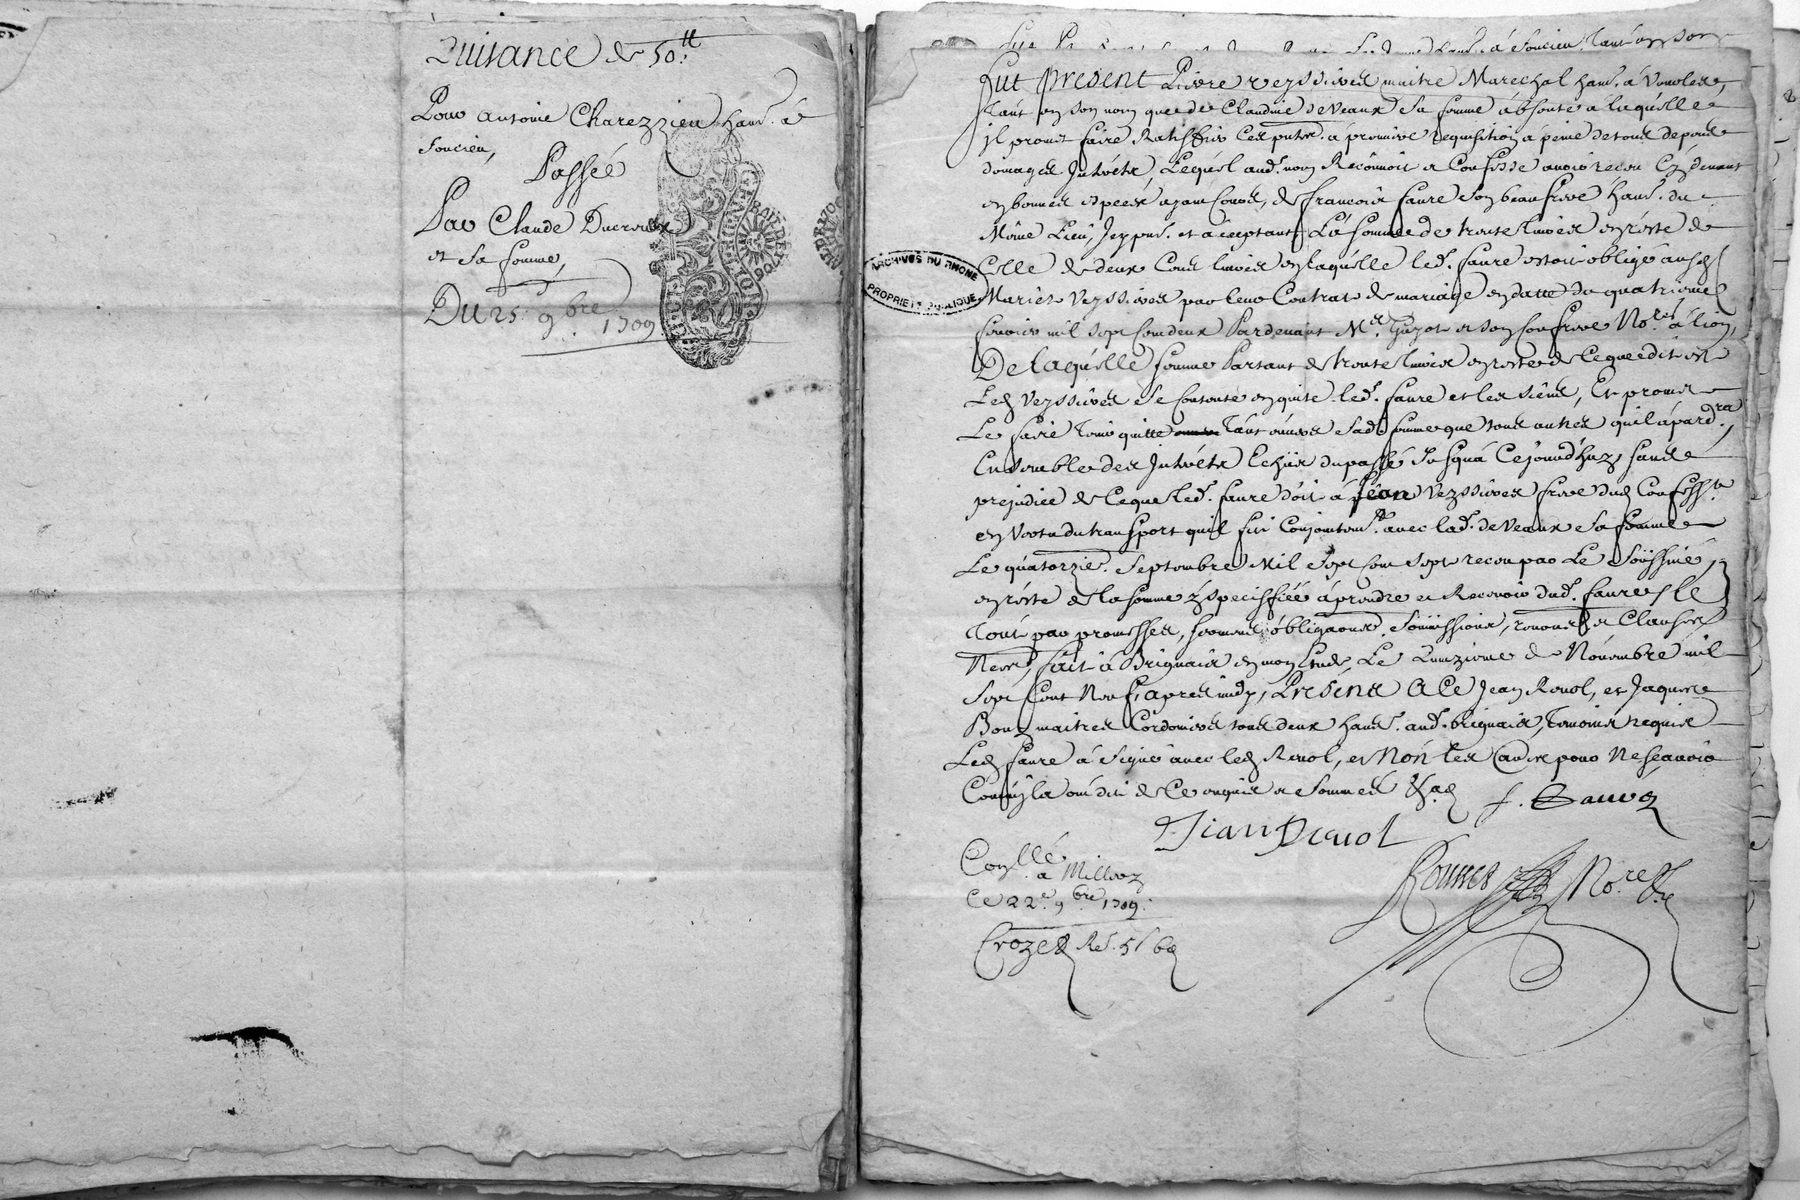 Quitance de 50.ᵗᵗ
Pour Antoine Charezzieu hant. à
Soucieu,
Passée
Par Claude Ducreux
et Sa femme,
Du 25. 9.bre 1709
GENERALITE DE LION
ARCHIVES DU RHONE
PROPRIETE PUBLIQUE
Fut présent Pierre Veyssieres maitre Marechal hant. à Vourles,
Tant en son nom que de Claudine deveaux Sa femme absente a laquelle
il promet faire Ratiffier Ces pntes. a premiere requisition a peine de tous depens
domages Interets, Lequel aud. nom Reconnoit et Confesse avoir receu Cy devant
en bonnes especes ayant Cours, de francois faure Son beau frere hant. du
Même Lieu, Icy pnt. et aceptant La Somme de trente livres en reste de
Celle de deux Cens livres en laquelle led. faure estoit obligé ausd.
Mariés Veyssieres par leur Contrat de mariage en datte du quatrieme
fevrier mil Sept Cen deux Pardevant Me. Guyot et son Confrere No.res à lion,
De laquelle Somme Partant de trente livres en reste de Ce que dit est
Led. Veyssieres Se Contente en quite led. faure et les siens, Et promet
Le faire Tenir quitte Tant envers Sad. femme que tous autres qu'il apard.ra,
Ensemble des Interets Echus du passé Jusqua Cejourd'huy sans
prejudice de Ce que led. faure doit à jean Veyssieres frere dud. Confess.t
en Vertu du transport quil fit Conjointem.t avec lad. deveaux Sa femme
Le quatorzie. Septembre Mil Sept Cen Sept receu par Le Soussigné,
en reste de la Somme y specifiée à prendre et Recevoir dud. faure, le
Tout par promesses, sermens, obligaons, Soumissions, renons. et Clauses
Necess. fait à Brignais en mon Etude, Le Quinzieme de Novembre mil
Sept Cent Neuf, apres midy, Présens à Ce Jean Revol, et Jaques
Bony maitres Cordoniers tous deux hants. aud. brignais, Temoins requis
Led. faure à Signé avec led. Revol, et Non les autres pour Ne Scavoir
Comm'ils ont dit de Ce enquis et Sommés
f. Faure
Jean Revol
Conllé
a Millery
Ce 22e. 9bre 1709.
Crozet Re. 5s 6d
No.re